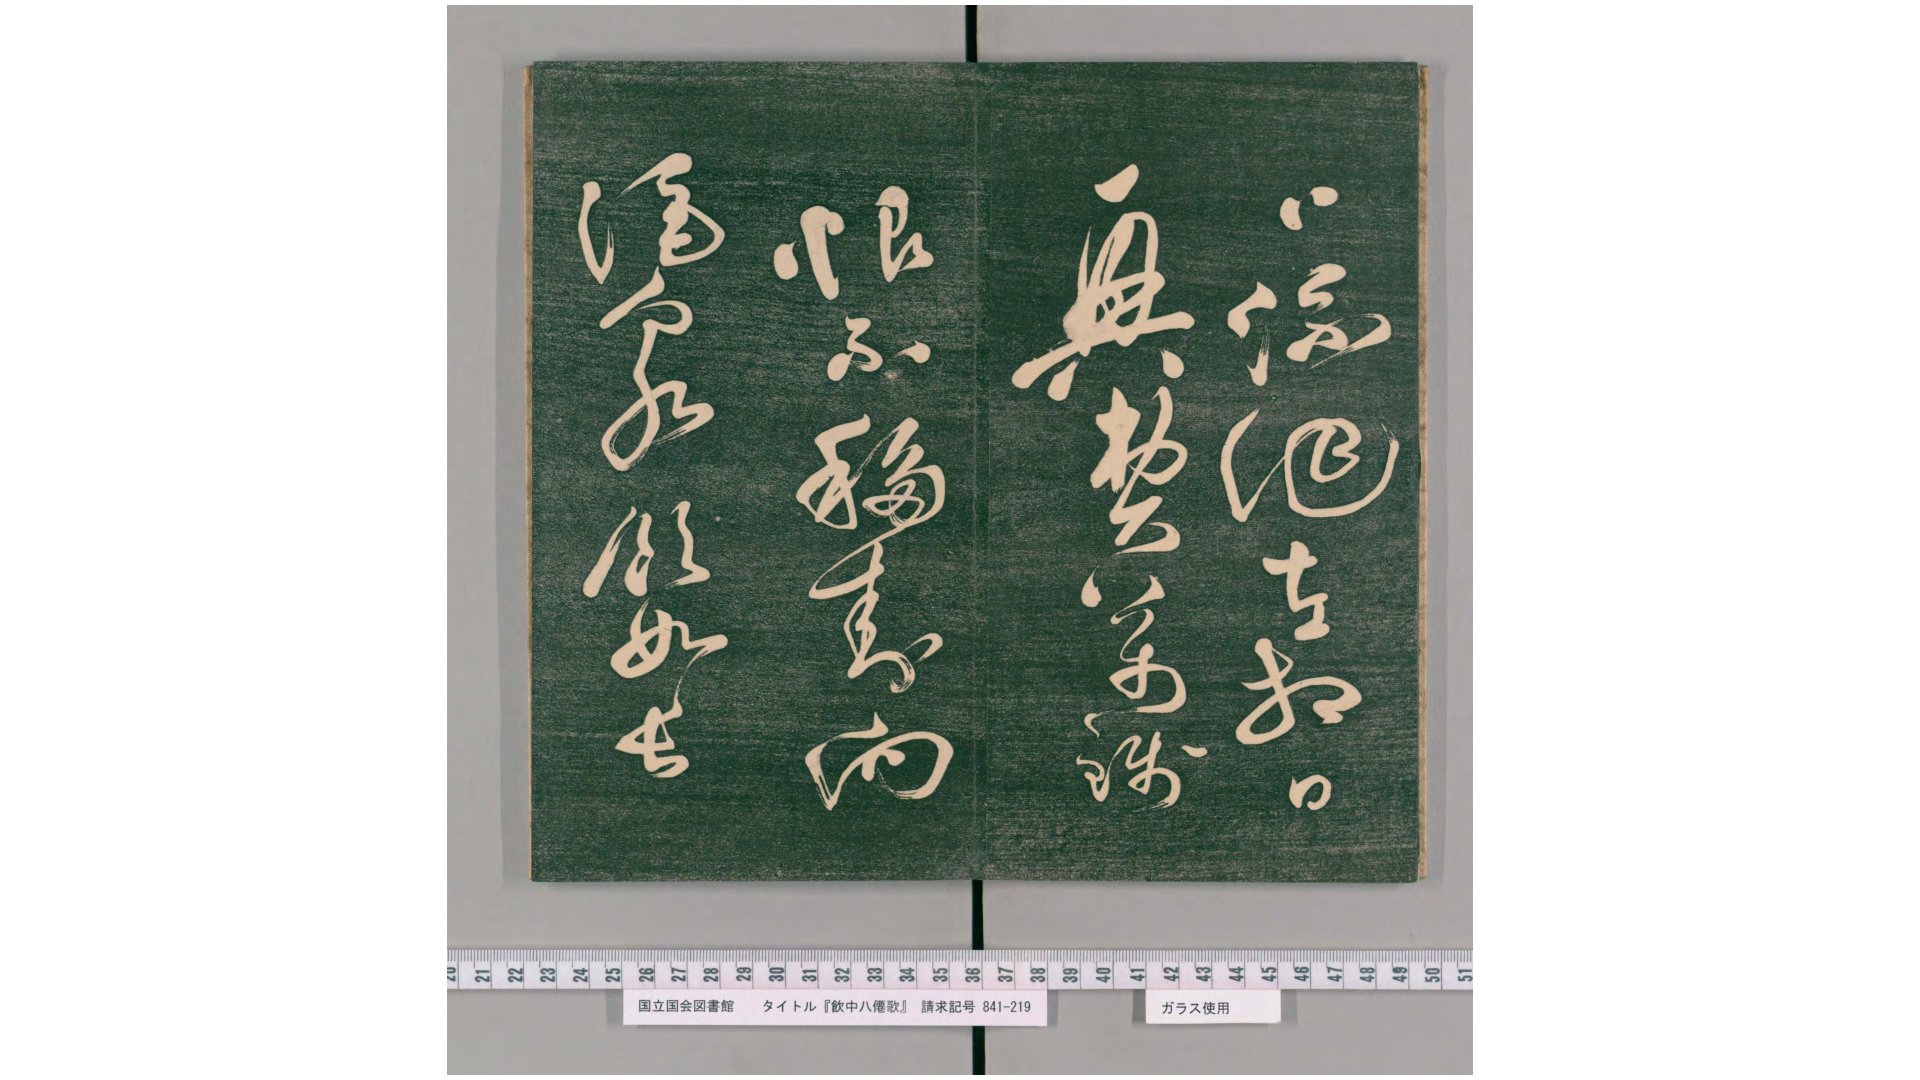 口流涎左相日
興費萬錢
恨不移封向
酒泉飲如長
20 21 22 23 24 25 26 27 28 29 30 31 32 33 34 35 36 37 38 39 40 41 42 43 44 45 46 47 48 49 50 51
国立国会図書館 タイトル『飲中八僊歌』 請求記号 841-219
ガラス使用